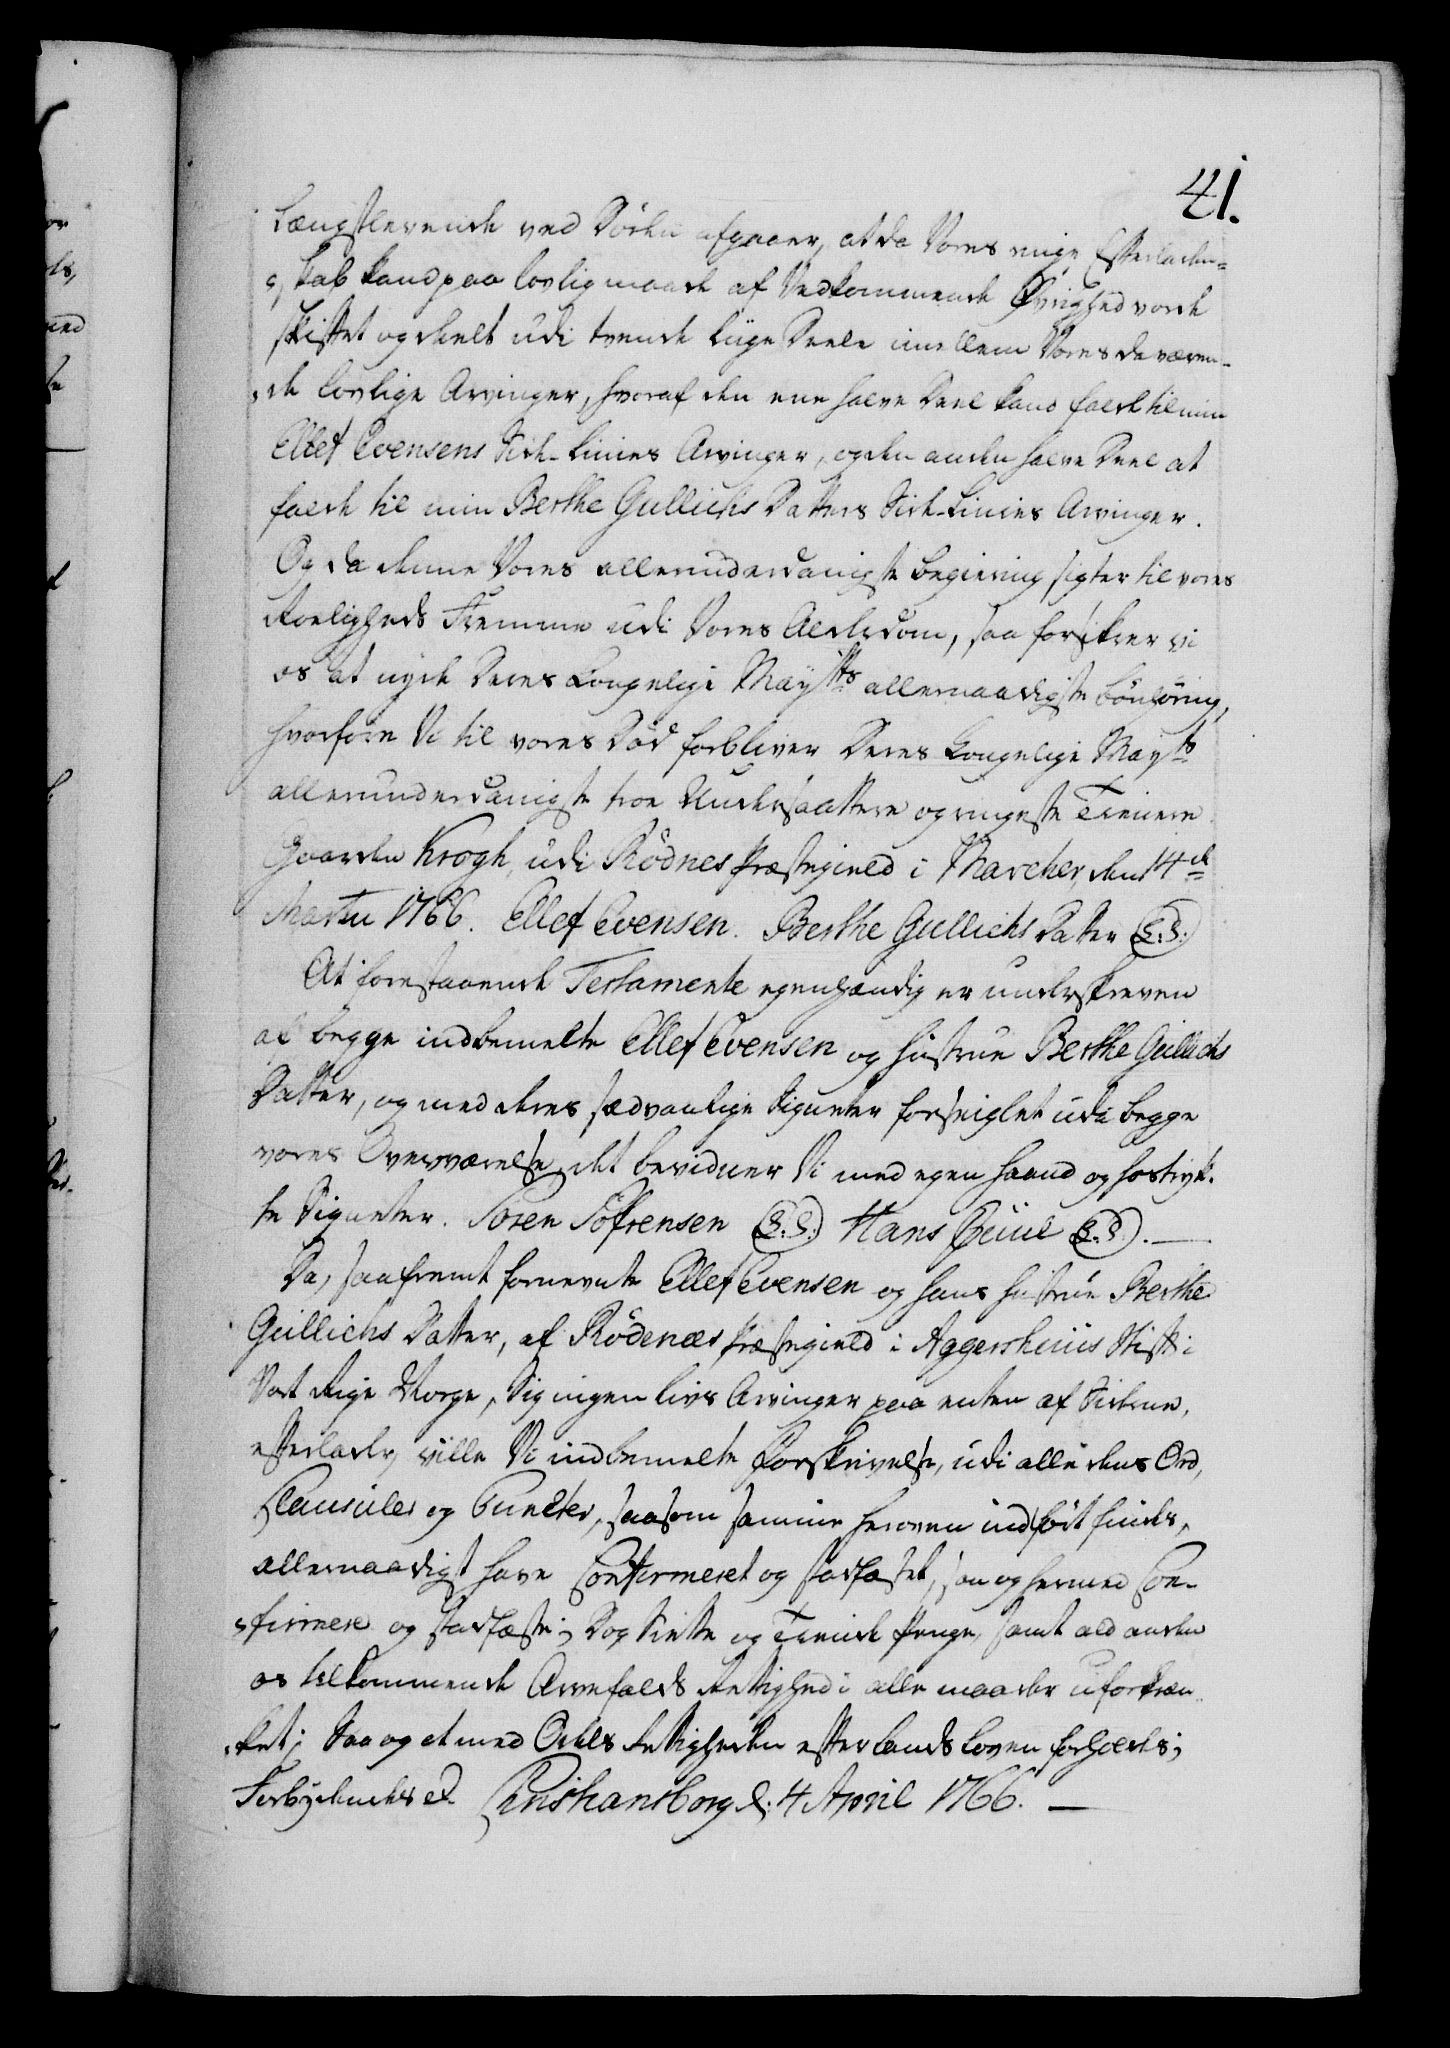 41.
Længstlevende ved Døden afgaaer, at da Vores ringe Efterladen-
skab kand paa lovlig maade af Vedkommende Øvrighed vorde
skiftet og deelt udi tvende liige Deele imellem Vores da væren-
de lovlige Arvinger, hvoraf den ene halve Deel kand falde til min
Ellef Evensens Side-Linies Arvinger, og den anden halve Deel at
falde til min Berthe Gullichs Datters Side-Linies Arvinger.
Og da denne Vores allerunderdanigste begiering sigter til vores
Roeligheds Fremme udi Vores Alderdom, saa forsikrer vi
os at nyde Deres Kongelige Mayts allernaadigste bønhøring,
hvorfore Vi til vores Død forbliver Deres Kongelige Mayts
allerunderdanigste troe Undersaattere og ringeste Tienere
Gaarden Krogh, udi Rödnes Præstegield i Marcher, den 14de
Martii 1766. Ellef Evensen. Berthe Gullichs Datter (L.S.)
At forestaaende Testamente egenhændig er underskreven
af begge indbemelte Ellef Evensen og hustrue Berthe Gullichs
Datter, og med deres sædvanlige Signeter forseiglet udi begge
vores Overværelse, det bevidner Vi med egen haand og hostryk-
te Signeter. Søren Söfrensen (L.S.) Hans Juul (L.S.).
Da, saafremt fornevnte Ellef Evensen og hans hustrue Berthe
Gullichs Datter, af Rödenæs Præstegield i Aggershuus Stift i
Vort Rige Norge, Sig ingen livs Arvinger paa enten af Siderne,
efterlader, ville Vi indbemelte Forskrivelse, udi alle dens Ord,
Clausuler og Puncter, saasom samme heroven indført findes,
allernaadigst have Confirmeret og stadfæstet, saa og hermed Con-
firmere og stadfæste; Dog Siette og Tiende Penge, samt ald anden
os tilkommende Arvefalds Rettighed i alle maader uforkræn-
ket; Saa og at med Odels Rettigheden efter Lands loven forholdes;
Forbydendes et Christiansborg d: 4 April 1766.